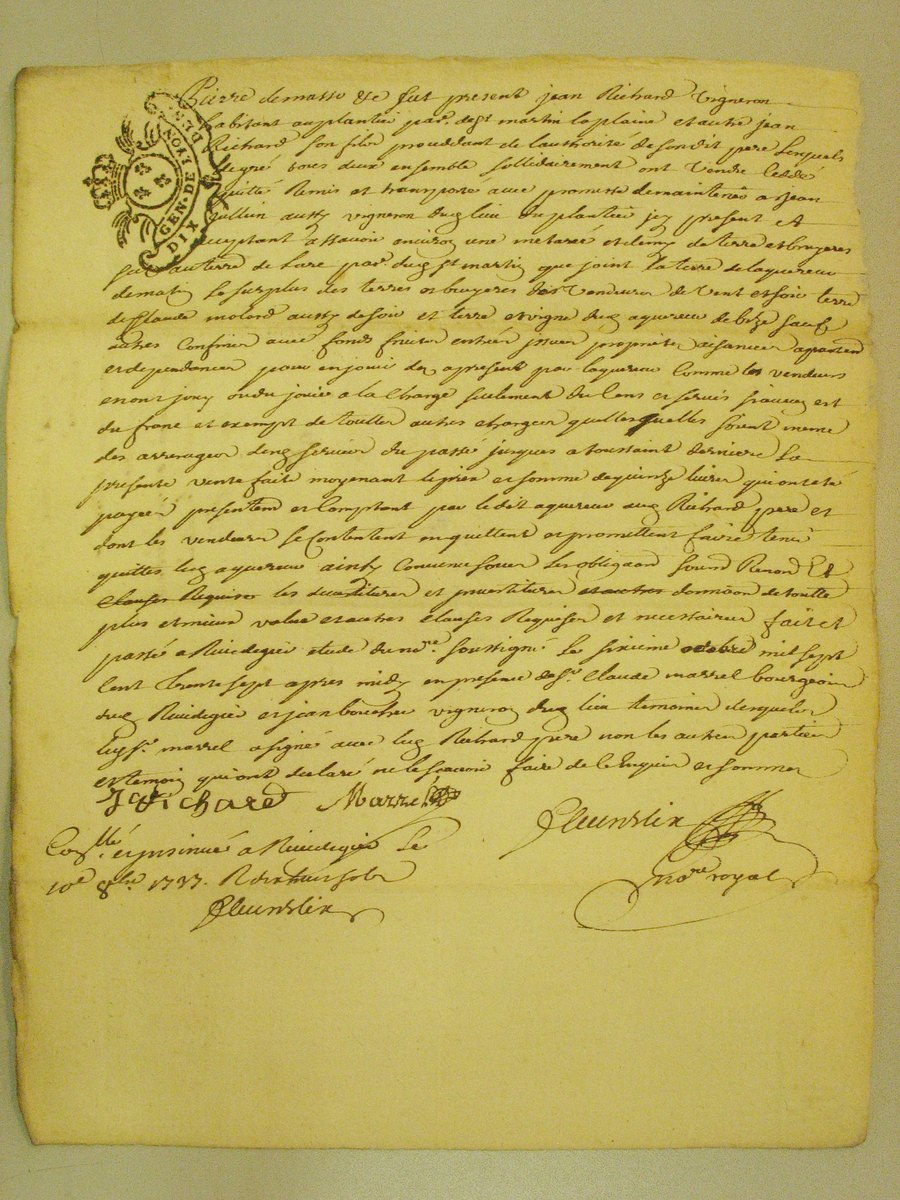 GEN. DE LYON
DIX DEN
Pierre demasso &c fut present jean Richard Vigneron
habitant au plantier par. de st martin la plaine et autre jean
Richard son fils proceddant de l'authorité de son dit pere lesquels
degré tous deux ensemble sollidairement ont vendu ceddé
quitté Remis et transporté avec promesse de maintenir a jean
aussy vigneron dud lieu du plantier jcy present et
acceptant assavoir environ une meterée et demy de terre et bruyeres
au terre de Lare par. dud st martin que joint la terre de laquereur
de matin Le surplus des terres et bruyeres des Vendeurs de Vent et soir terre
de Claude molard aussy de soir et terre et vigne dud aquereur de bize sauf
autres Confins avec fonds fruits entrées jssues proprietés aisances apartenances
et dependances pour en jouir des apresent par laquereur Comme les vendeurs
en ont jouy ou du jouir a la Charge seulement du Cens et servis
du franc et exempt de touttes autres charges quelles quelles soient meme
des arrerages desd servis du passé jusques a toussaint derniere La
presente vente faite moyenant le prix et somme de quinze livres qui ont été
payées presentem et Comptant par le dit aquereur aud Richard pere et
dont les vendeurs se Contentent en quittent et promettent faire tenir
quitte led aquereur ainsy Convenu sous Les obligaons soumd Renond Et
Clauses Requises les devestitures et jnvestitures et autres donnaon de toutte
plus et mieux value et autres Clauses Requises et necessaires fait et
passé a Rivedegier etude du nore. soussigné Le sixieme octobre mil sept
Cent trente sept apres midy en presence de Sr. Claude marrel bourgeois
dud Rivedegier et jean vigneron dud lieu temoins desquels
led Sr. marrel a signé avec led Richard pere non les autres parties
et temoin qui ont declaré ne le scavoir faire de ce Enquis et sommés
J Richard Marrel
Conllé et jnsinué a Rivedegier Le
10e 8bre 1737. R
nore royal